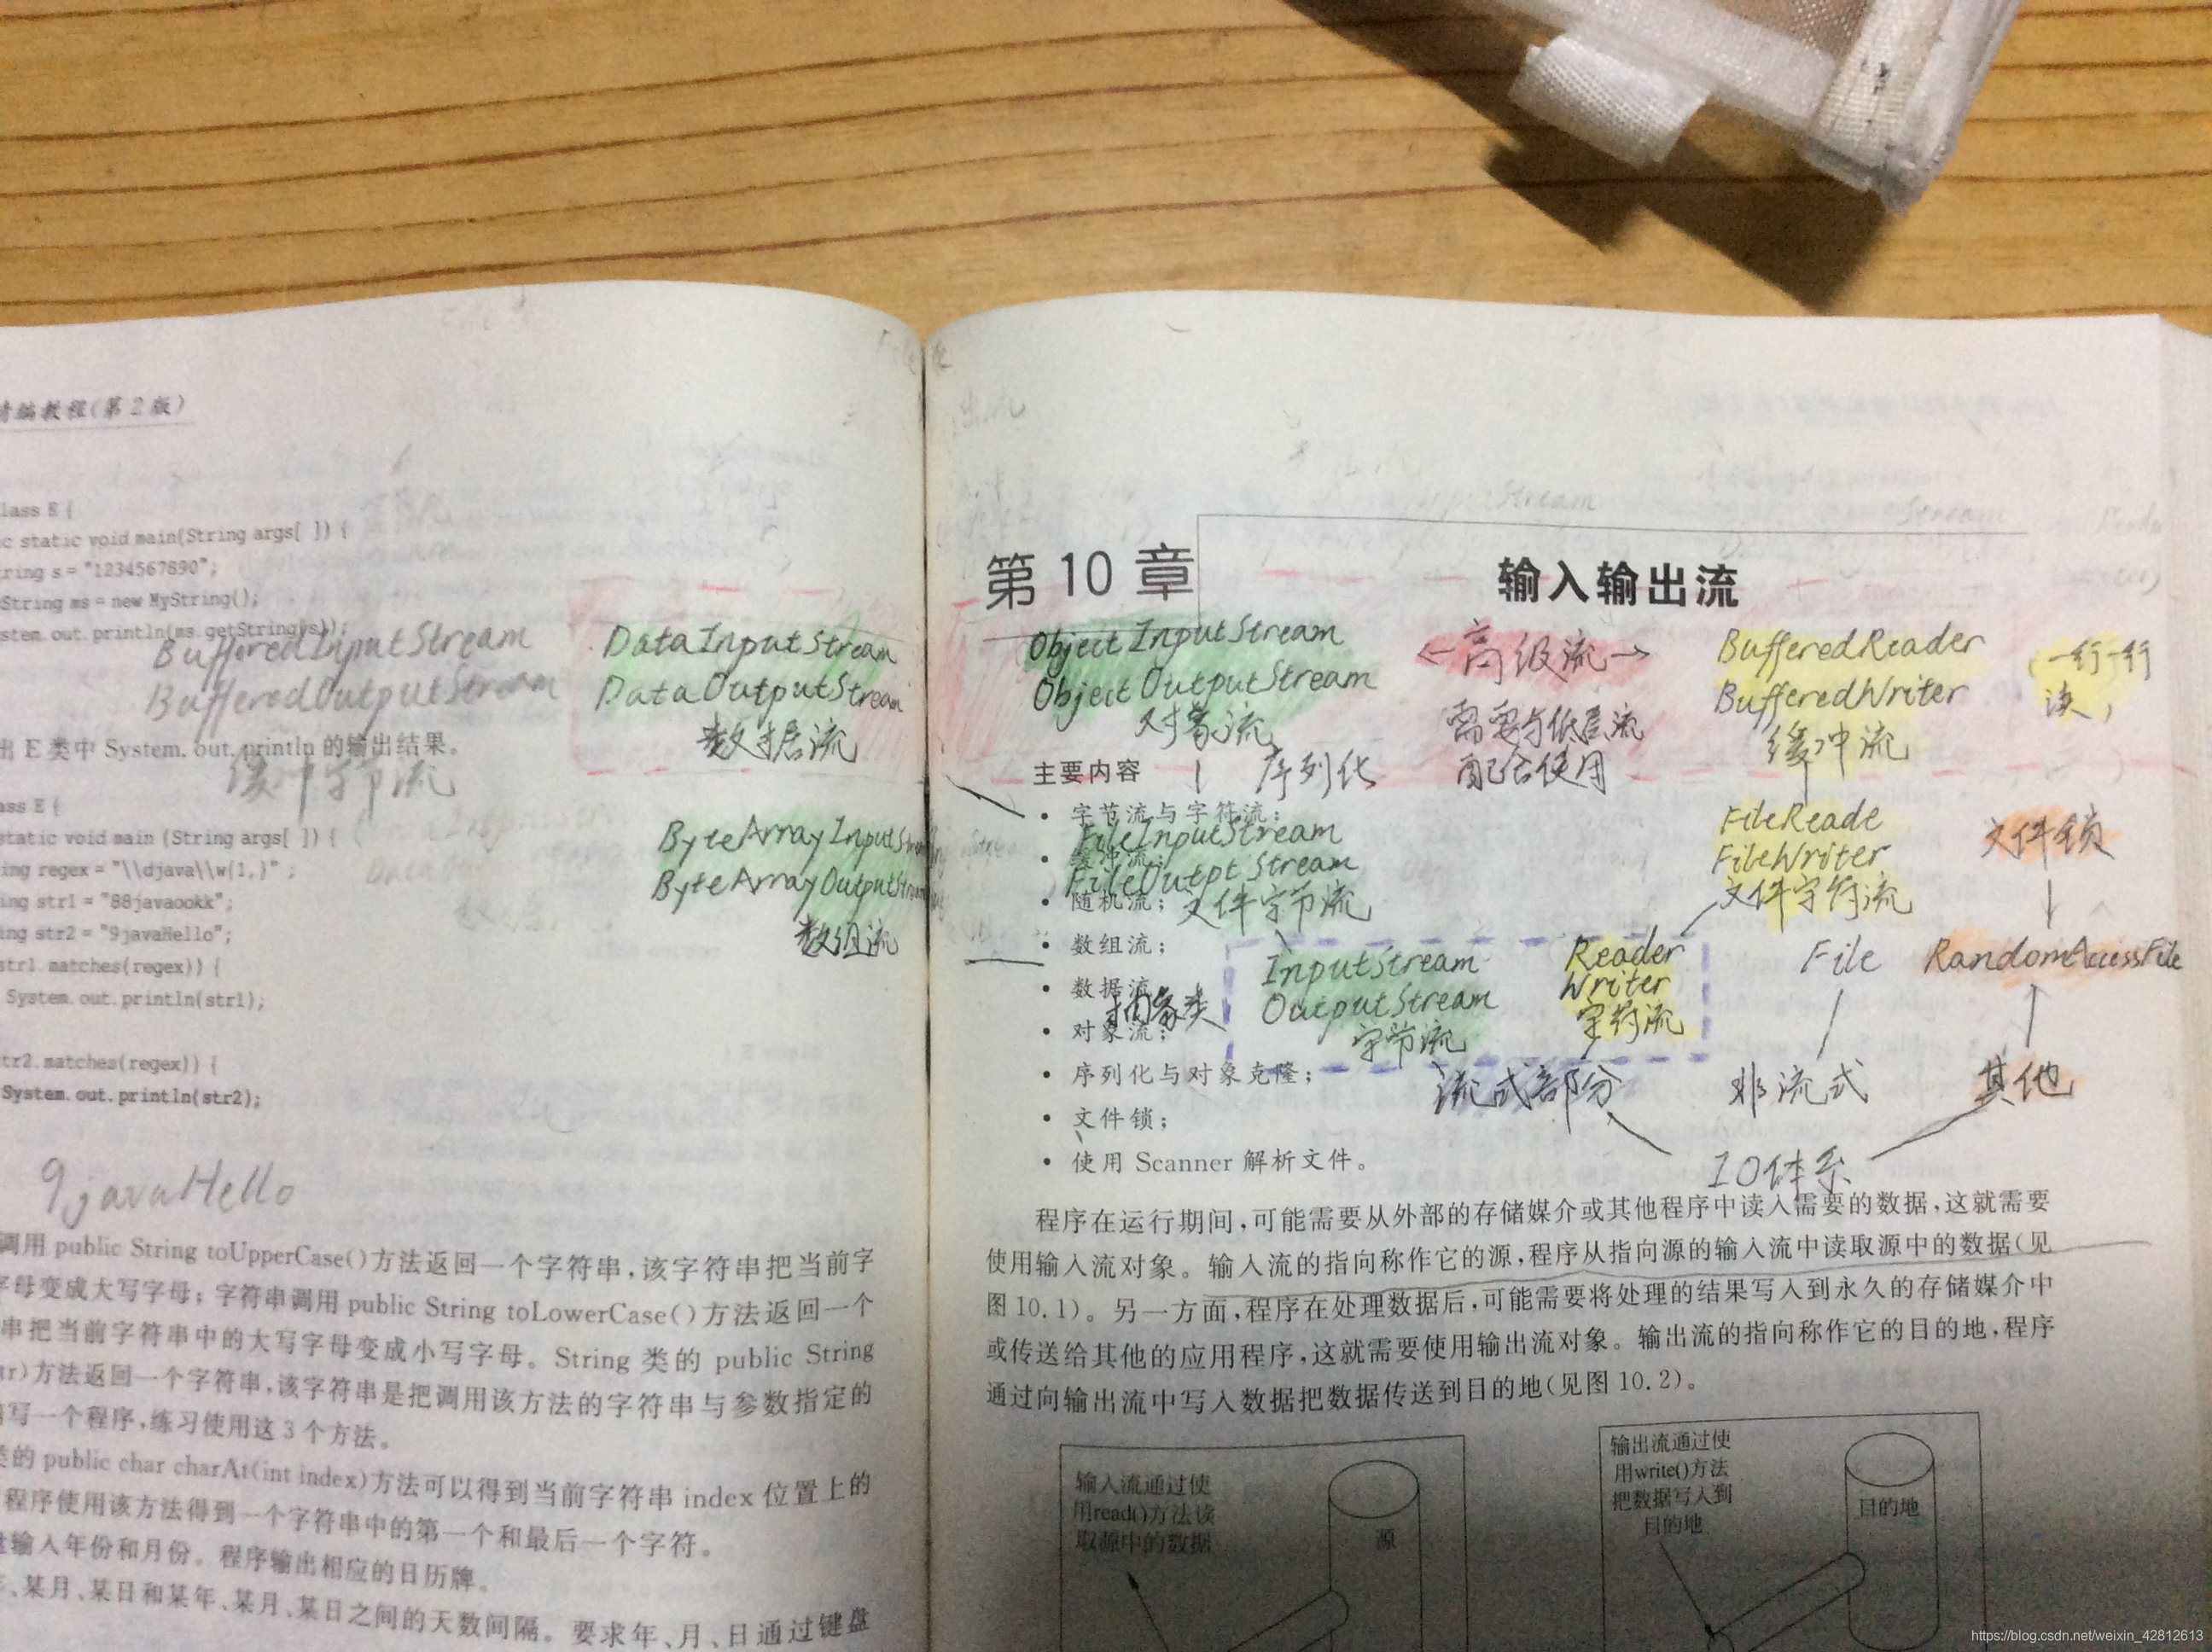 精编教程(第2版)
lass E {
ic static void main(String args[ ]) {
tring s = "1234567890";
yString ms = new MyString();
stem.out.println(ms.getString(s));
BufferedInputStream
BufferedOutputStream
出 E 类中 System. out. println 的输出结果。
缓冲字节流
ass E {
static void main (String args[ ]) {
ing regex = "\\djava\\w{1,}" ;
ing str1 = "88javaookk";
ing str2 = "9javaHello";
str1.matches(regex)) {
System.out.println(str1);
tr2.matches(regex)) {
System.out.println(str2);
9javaHello
调用 public String toUpperCase()方法返回一个字符串,该字符串把当前字
字母变成大写字母;字符串调用 public String toLowerCase()方法返回一个
串把当前字符串中的大写字母变成小写字母。String 类的 public String
tr)方法返回一个字符串,该字符串是把调用该方法的字符串与参数指定的
编写一个程序,练习使用这3个方法。
类的 public char charAt(int index)方法可以得到当前字符串 index 位置上的
程序使用该方法得到一个字符串中的第一个和最后一个字符。
输入年份和月份。程序输出相应的日历牌。
、某月、某日和某年、某月、某日之间的天数间隔。要求年、月、日通过键盘
DataInputStream
DataOutputStream
数据流
ByteArrayInputStream
ByteArrayOutputStream
数组流
第 10 章
输入输出流
ObjectInputStream
ObjectOutputStream
对象流
序列化
←高级流→
需要与低层流
配合使用
BufferedReader
BufferedWriter
缓冲流
(一行一行
读)
主要内容
• 字节流与字符流;
• 缓冲流;
• 随机流;
• 数组流;
• 数据流
• 对象流;
• 序列化与对象克隆;
• 文件锁;
• 使用 Scanner 解析文件。
FileInputStream
FileOutptStream
文件字节流
FileReade
FileWriter
文件字符流
文件锁
抽象类
InputStream
OutputStream
字节流
Reader
Writer
字符流
File
RandomAccessFile
流式部分
非流式
其他
IO体系
程序在运行期间,可能需要从外部的存储媒介或其他程序中读入需要的数据,这就需要
使用输入流对象。输入流的指向称作它的源,程序从指向源的输入流中读取源中的数据(见
图 10.1)。另一方面,程序在处理数据后,可能需要将处理的结果写入到永久的存储媒介中
或传送给其他的应用程序,这就需要使用输出流对象。输出流的指向称作它的目的地,程序
通过向输出流中写入数据把数据传送到目的地(见图 10.2)。
输入流通过使
用read()方法读
取源中的数据
源
输出流通过使
用write()方法
把数据写入到
目的地
目的地
https://blog.csdn.net/weixin_42812613